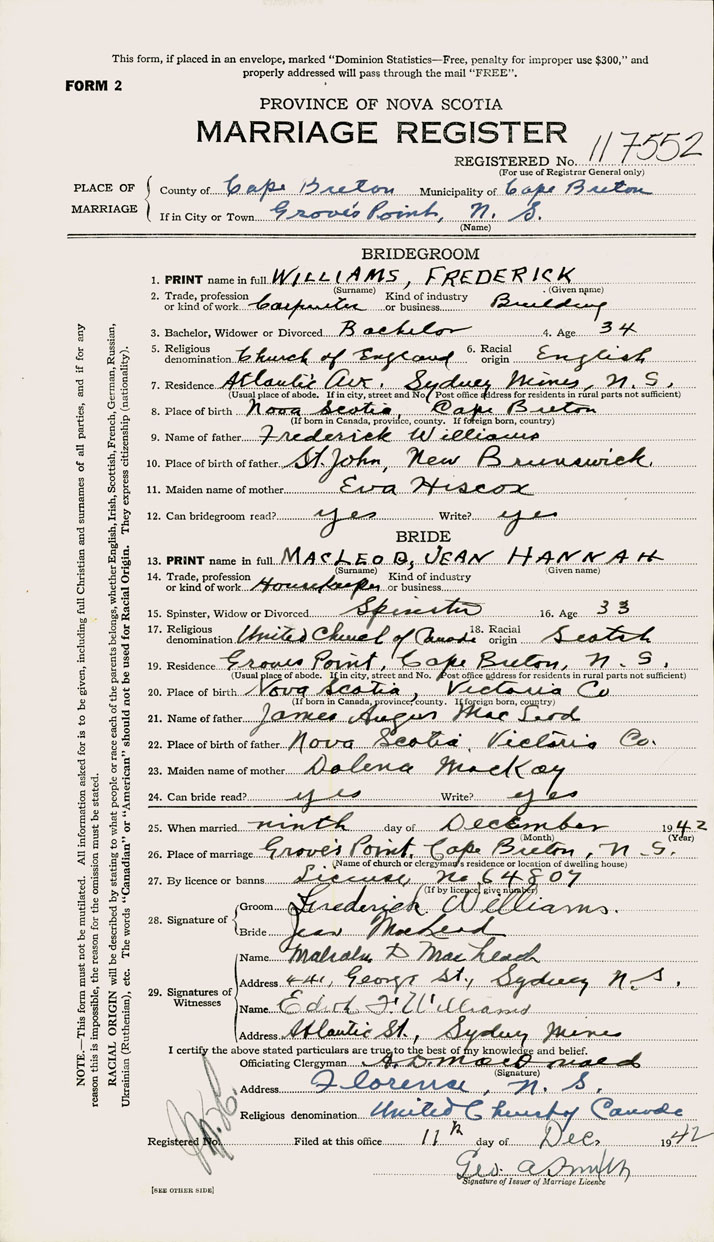 This form, if placed in an envelope, marked "Dominion Statistics—Free, penalty for improper use $300," and
properly addressed will pass through the mail "FREE".
FORM 2
PROVINCE OF NOVA SCOTIA
MARRIAGE REGISTER
REGISTERED No. 117552
(For use of Registrar General only)
PLACE OF MARRIAGE
County of Cape Breton Municipality of Cape Breton
If in City or Town Groves Point, N. S.
(Name)
BRIDEGROOM
1. PRINT name in full WILLIAMS, FREDERICK
(Surname) (Given name)
2. Trade, profession or kind of work Carpenter Kind of industry or business Building
3. Bachelor, Widower or Divorced Bachelor 4. Age 34
5. Religious denomination Church of England 6. Racial origin English
7. Residence Atlantic Ave. Sydney Mines, N. S.
(Usual place of abode. If in city, street and No. Post office address for residents in rural parts not sufficient)
8. Place of birth Nova Scotia, Cape Breton
(If born in Canada, province, county. If foreign born, country)
9. Name of father Frederick Williams
10. Place of birth of father St. John, New Brunswick.
11. Maiden name of mother Eva Hiscox
12. Can bridegroom read? yes Write? yes
BRIDE
13. PRINT name in full MACLEOD, JEAN HANNAH
(Surname) (Given name)
14. Trade, profession or kind of work Housekeeper Kind of industry or business
15. Spinster, Widow or Divorced Spinster 16. Age 33
17. Religious denomination United Church of Canada 18. Racial origin Scotch
19. Residence Groves Point, Cape Breton, N. S.
(Usual place of abode. If in city, street and No. Post office address for residents in rural parts not sufficient)
20. Place of birth Nova Scotia, Victoria Co
(If born in Canada, province, county. If foreign born, country)
21. Name of father James Angus MacLeod
22. Place of birth of father Nova Scotia, Victoria Co.
23. Maiden name of mother Dolena MacKay
24. Can bride read? yes Write? yes
25. When married ninth day of December 1942
(Month) (Year)
26. Place of marriage Grove's Point, Cape Breton, N. S.
(Name of church or clergyman's residence or location of dwelling house)
27. By licence or banns License, No 64807
(If by licence, give number)
28. Signature of
Groom Frederick Williams.
Bride Jean MacLeod
29. Signatures of Witnesses
Name Malcolm D
Address 441, George St., Sydney N. S.
Name Edith F Williams
Address Atlantic St., Sydney Mines
I certify the above stated particulars are true to the best of my knowledge and belief.
Officiating Clergyman A. D. MacDonald
(Signature)
Address Florence, N. S.
Religious denomination United Church of Canada
Registered No. Filed at this office 11th day of Dec. 1942
Geo. A Smith
Signature of Issuer of Marriage Licence
[SEE OTHER SIDE]
NOTE.—This form must not be mutilated. All information asked for is to be given, including full Christian and surnames of all parties, and if for any
reason this is impossible, the reason for the omission must be stated.
RACIAL ORIGIN will be described by stating to what people or race each of the parents belongs, whether English, Irish, Scottish, French, German, Russian,
Ukrainian (Ruthenian), etc. The words "Canadian" or "American" should not be used for Racial Origin. They express citizenship (nationality).